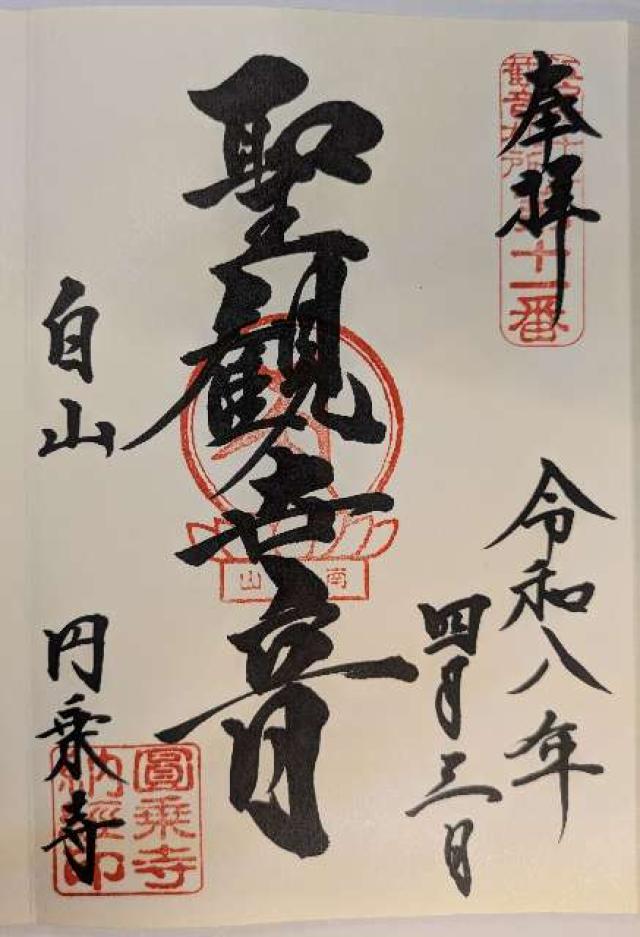 奉拝
十一番
令和八年
四月三日
聖観世音
南
山
白山
円乗寺
圓乗寺
納經印